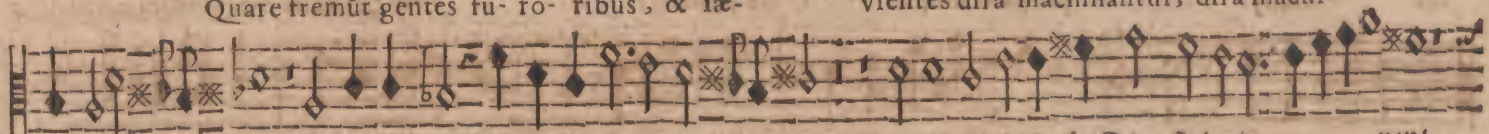 Quare fremūt gentes fu- ro- ribus, & sæ- vientes dira machinantur, dira